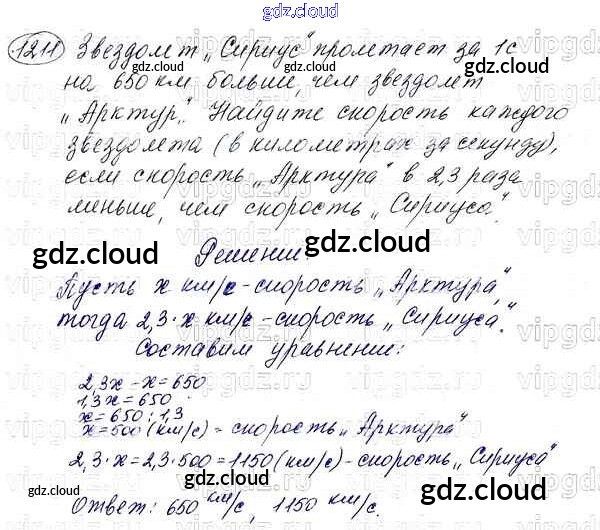 gdz.cloud
1211 Звездолёт „Сириус" пролетает за 1с
на 650 км больше, чем звездолёт
„Арктур". Найдите скорость каждого
звездолёта (в километрах за секунду),
если скорость „Арктура" в 2,3 раза
меньше, чем скорость „Сириуса".
gdz.cloud gdz.cloud
Решение
Пусть x км/с - скорость „Арктура",
тогда 2,3·x км/с - скорость „Сириуса".
Составим уравнение:
gdz.cloud gdz.cloud
2,3x - x = 650
1,3x = 650
x = 650 : 1,3
x = 500 (км/с) - скорость „Арктура"
2,3·x = 2,3·500 = 1150 (км/с) - скорость „Сириуса"
gdz.cloud gdz.cloud
Ответ: 650 км/с, 1150 км/с.
gdz.cloud